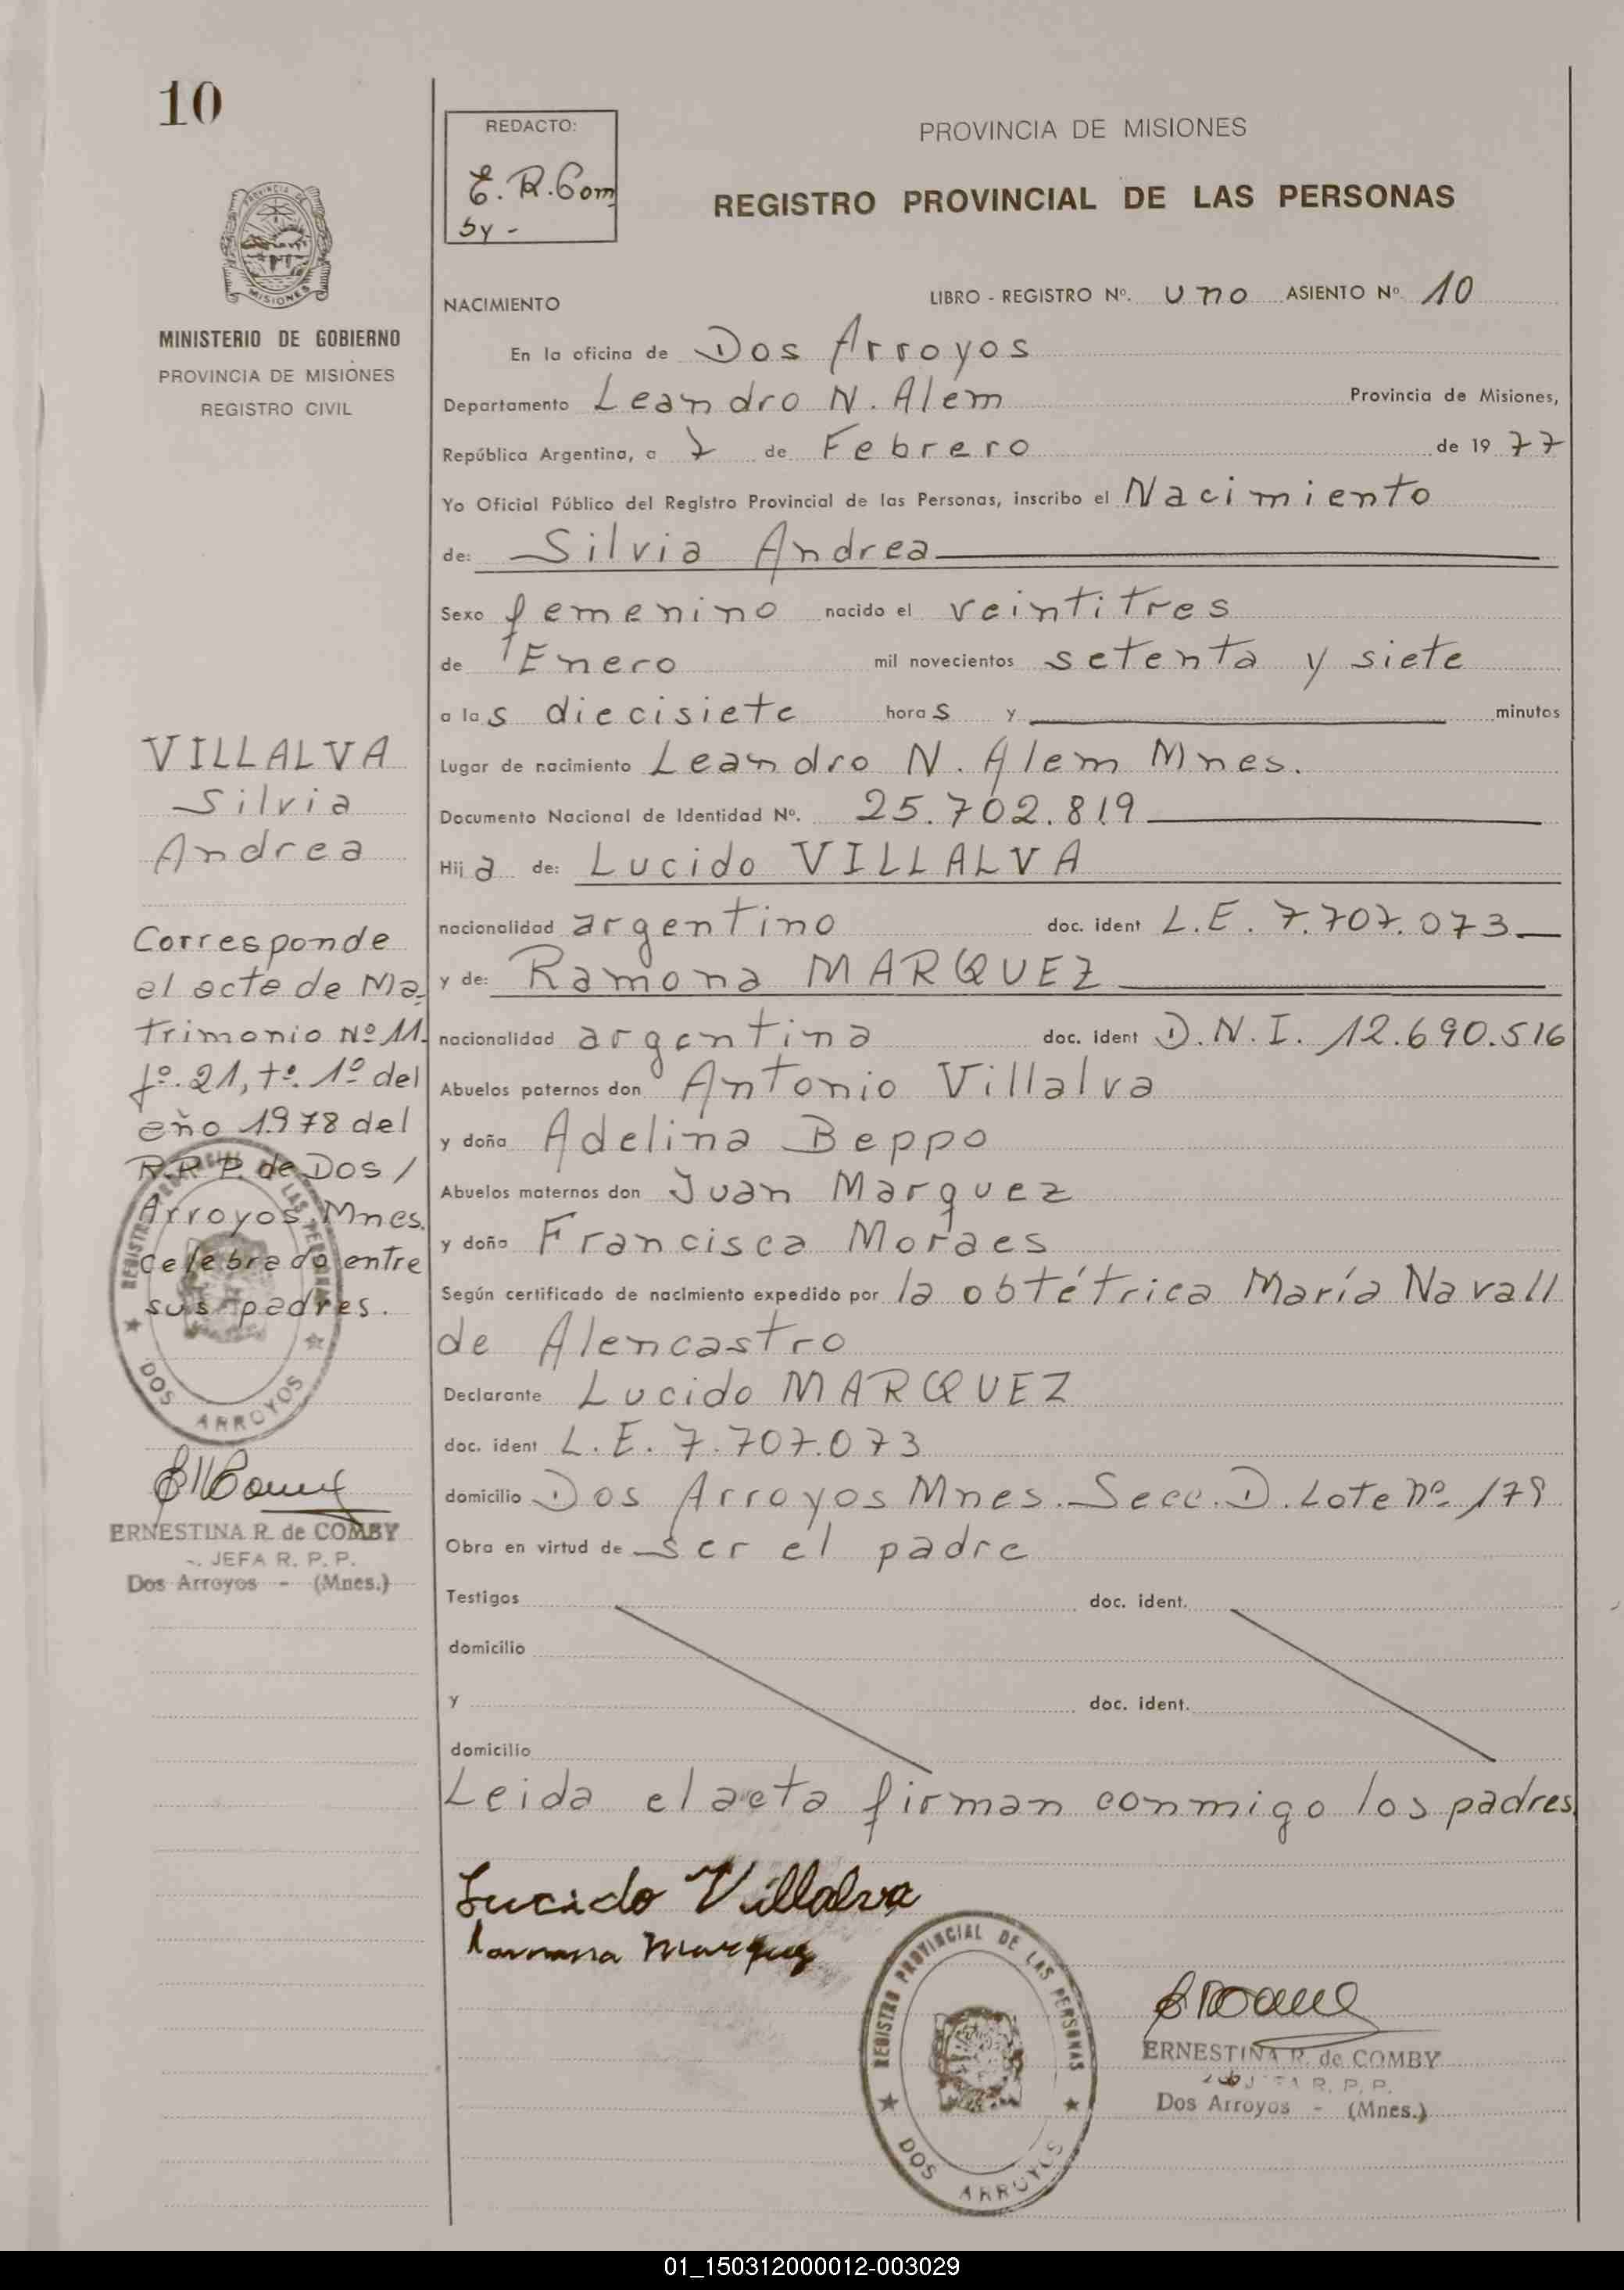 10
PROVINCIA DE
MISIONES
MINISTERIO DE GOBIERNO
PROVINCIA DE MISIONES
REGISTRO CIVIL
VILLALVA
Silvia
Andrea
Corresponde
al acta de Ma-
trimonio Nº 11.
fº. 21, tº. 1º del
año 1978 del
R.R.P. de Dos /
Arroyos Mnes.
celebrado entre
sus padres.
REGISTRO PROVINCIAL DE LAS PERSONAS
DOS ARROYOS
ERNESTINA R. de COMBY
JEFA R. P. P.
Dos Arroyos - (Mnes.)
REDACTO:
E. R. Com
by -
PROVINCIA DE MISIONES
REGISTRO PROVINCIAL DE LAS PERSONAS
NACIMIENTO LIBRO - REGISTRO Nº. uno ASIENTO Nº. 10
En la oficina de Dos Arroyos
Departamento Leandro N. Alem Provincia de Misiones,
República Argentina, a 7 de Febrero de 1977
Yo Oficial Público del Registro Provincial de las Personas, inscribo el Nacimiento
de: Silvia Andrea
Sexo femenino nacido el veintitres
de Enero mil novecientos setenta y siete
a las diecisiete horas y minutos
Lugar de nacimiento Leandro N. Alem Mnes.
Documento Nacional de Identidad Nº. 25.702.819
Hija de: Lucido VILLALVA
nacionalidad argentino doc. ident L.E. 7.707.073
y de: Ramona MARQUEZ
nacionalidad argentina doc. ident D.N.I. 12.690.516
Abuelos paternos don Antonio Villalva
y doña Adelina Beppo
Abuelos maternos don Juan Marquez
y doña Francisca Moraes
Según certificado de nacimiento expedido por la obtétrica María Navall
de Alencastro
Declarante Lucido MARQUEZ
doc. ident L.E. 7.707.073
domicilio Dos Arroyos Mnes. Secc. D. Lote nº 179
Obra en virtud de ser el padre
Testigos doc. ident.
domicilio
y doc. ident.
domicilio
Leida el acta firman conmigo los padres.
Lucido Villalva
Ramona Marquez
REGISTRO PROVINCIAL DE LAS PERSONAS
DOS ARROYOS
ERNESTINA R. de COMBY
R. P. P.
Dos Arroyos - (Mnes.)
01_150312000012-003029